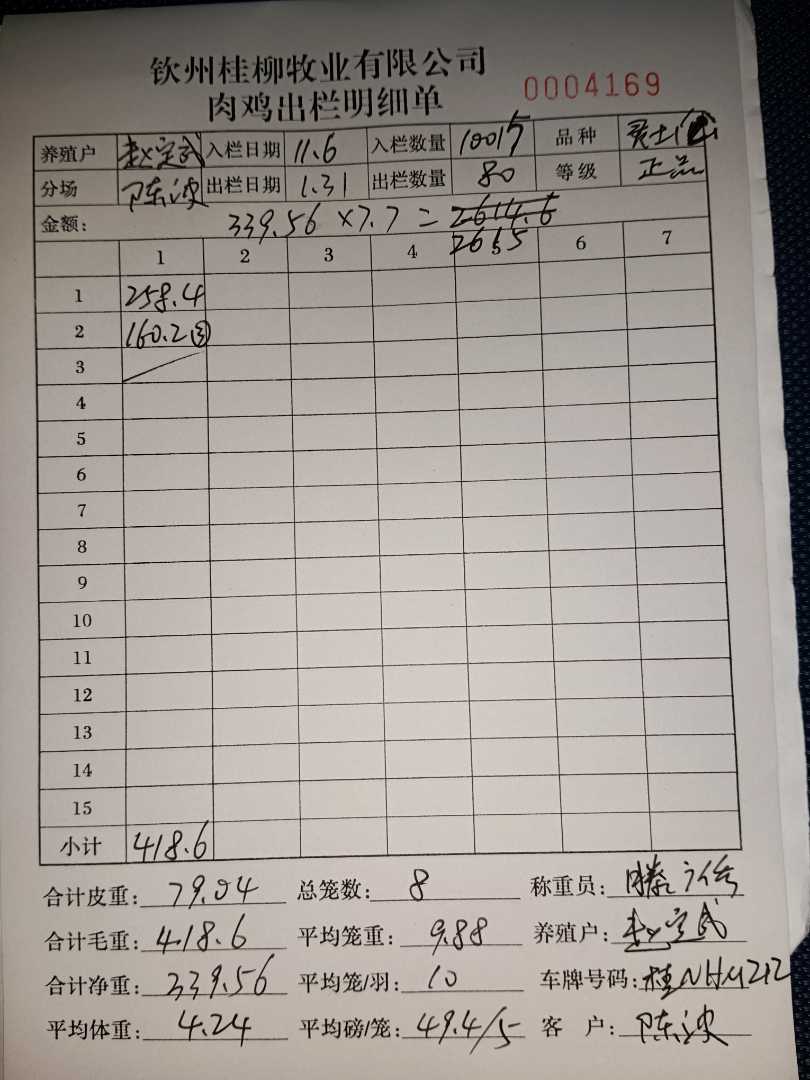 钦州桂柳牧业有限公司
肉鸡出栏明细单 0004169
养殖户 赵定武 入栏日期 11.6 入栏数量 10015 品种
分场 陈波 出栏日期 1.31 出栏数量 80 等级 正品
金额: 339.56 ×7.7 = 2614.6
2615
1 2 3 4 6 7
1 258.4
2 160.2 ③
3
4
5
6
7
8
9
10
11
12
13
14
15
小计 418.6
合计皮重: 79.04 总笼数: 8 称重员:
合计毛重: 418.6 平均笼重: 9.88 养殖户: 赵定武
合计净重: 339.56 平均笼/羽: 10 车牌号码: 桂NHM212
平均体重: 4.24 平均磅/笼: 49.4/5 客 户: 陈波